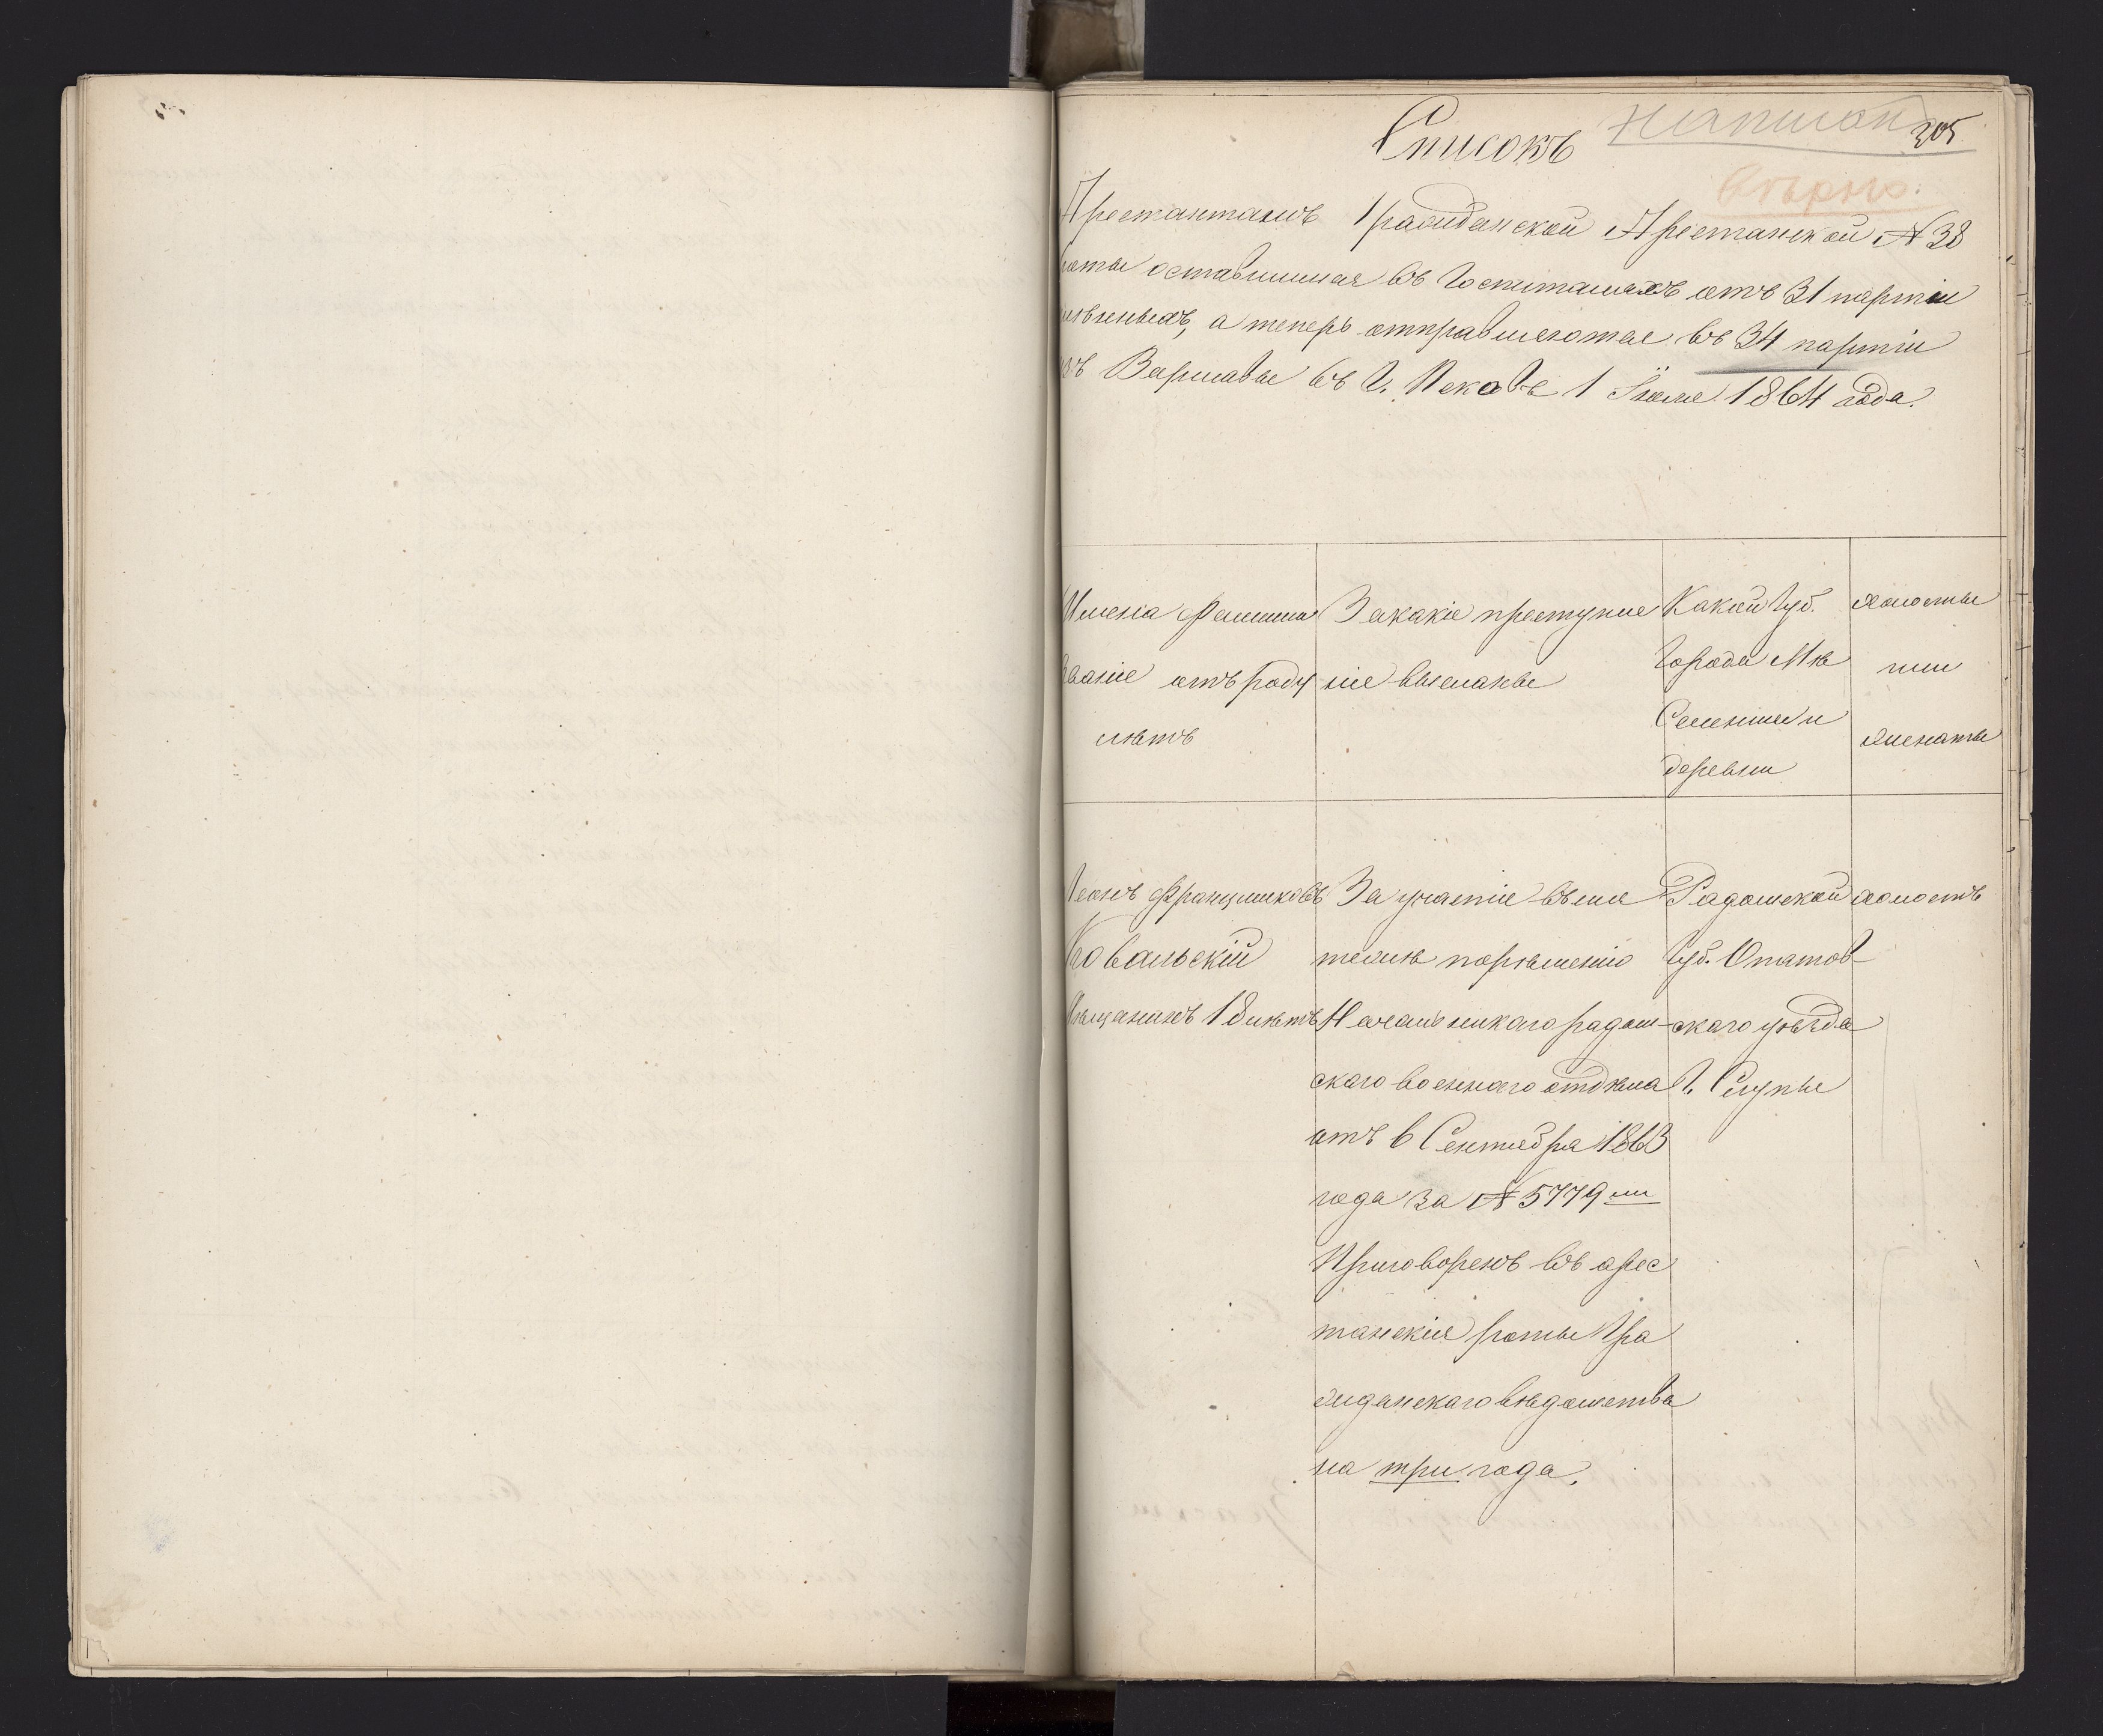 Написанъ
305
Списокъ
вѣрно.
Арестантамъ Гражданской Арестанской № 38
роты оставшимся въ Госпиталяхъ отъ 31 партіи
а теперь отправляются въ 34 партіи
изъ Варшавы въ Г. Псковъ 1 Іюля 1864 года.
Имена Фамиліи
Званіе отъ роду
лѣтъ
За какіе преступле
ніе высланы
Какой Губ.
Города Мѣ
Селенія и
деревни
холосты
или
женаты
Леонъ Францишковъ
Ковальскій
Мѣщанинъ 18 лѣтъ
За участіе въ мя
тежѣ порѣшенію
Начальникаго радом-
скаго военнаго отдѣла
отъ 6 Сентября 1863
года за № 5779 ми
Приговоренъ въ арес
танскія роты Гра
жданскаго вѣдомства
на три года.
Радомской
Губ. Опатов-
скаго уѣзда
Г. Слупы
холостъ